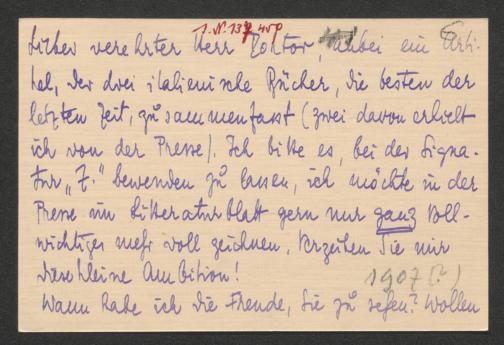 J. N. 137 450
Lieber verehrter Herr Doktor, anbei ein Arti-
kel, der drei italienische Bücher, die besten der
letzten Zeit, zusammenfasst (zwei davon erhielt
ich von der Presse). Ich bitte es, bei der Signa-
tur „Z.“ bewenden zu lassen, ich möchte in der
Presse im Litteraturblatt gern nur ganz Voll-
wichtiges mehr voll zeichnen. Verzeihen Sie mir
diese kleine Ambition!
1907 (?)
Wann habe ich die Freude, Sie zu sehen? Wollen